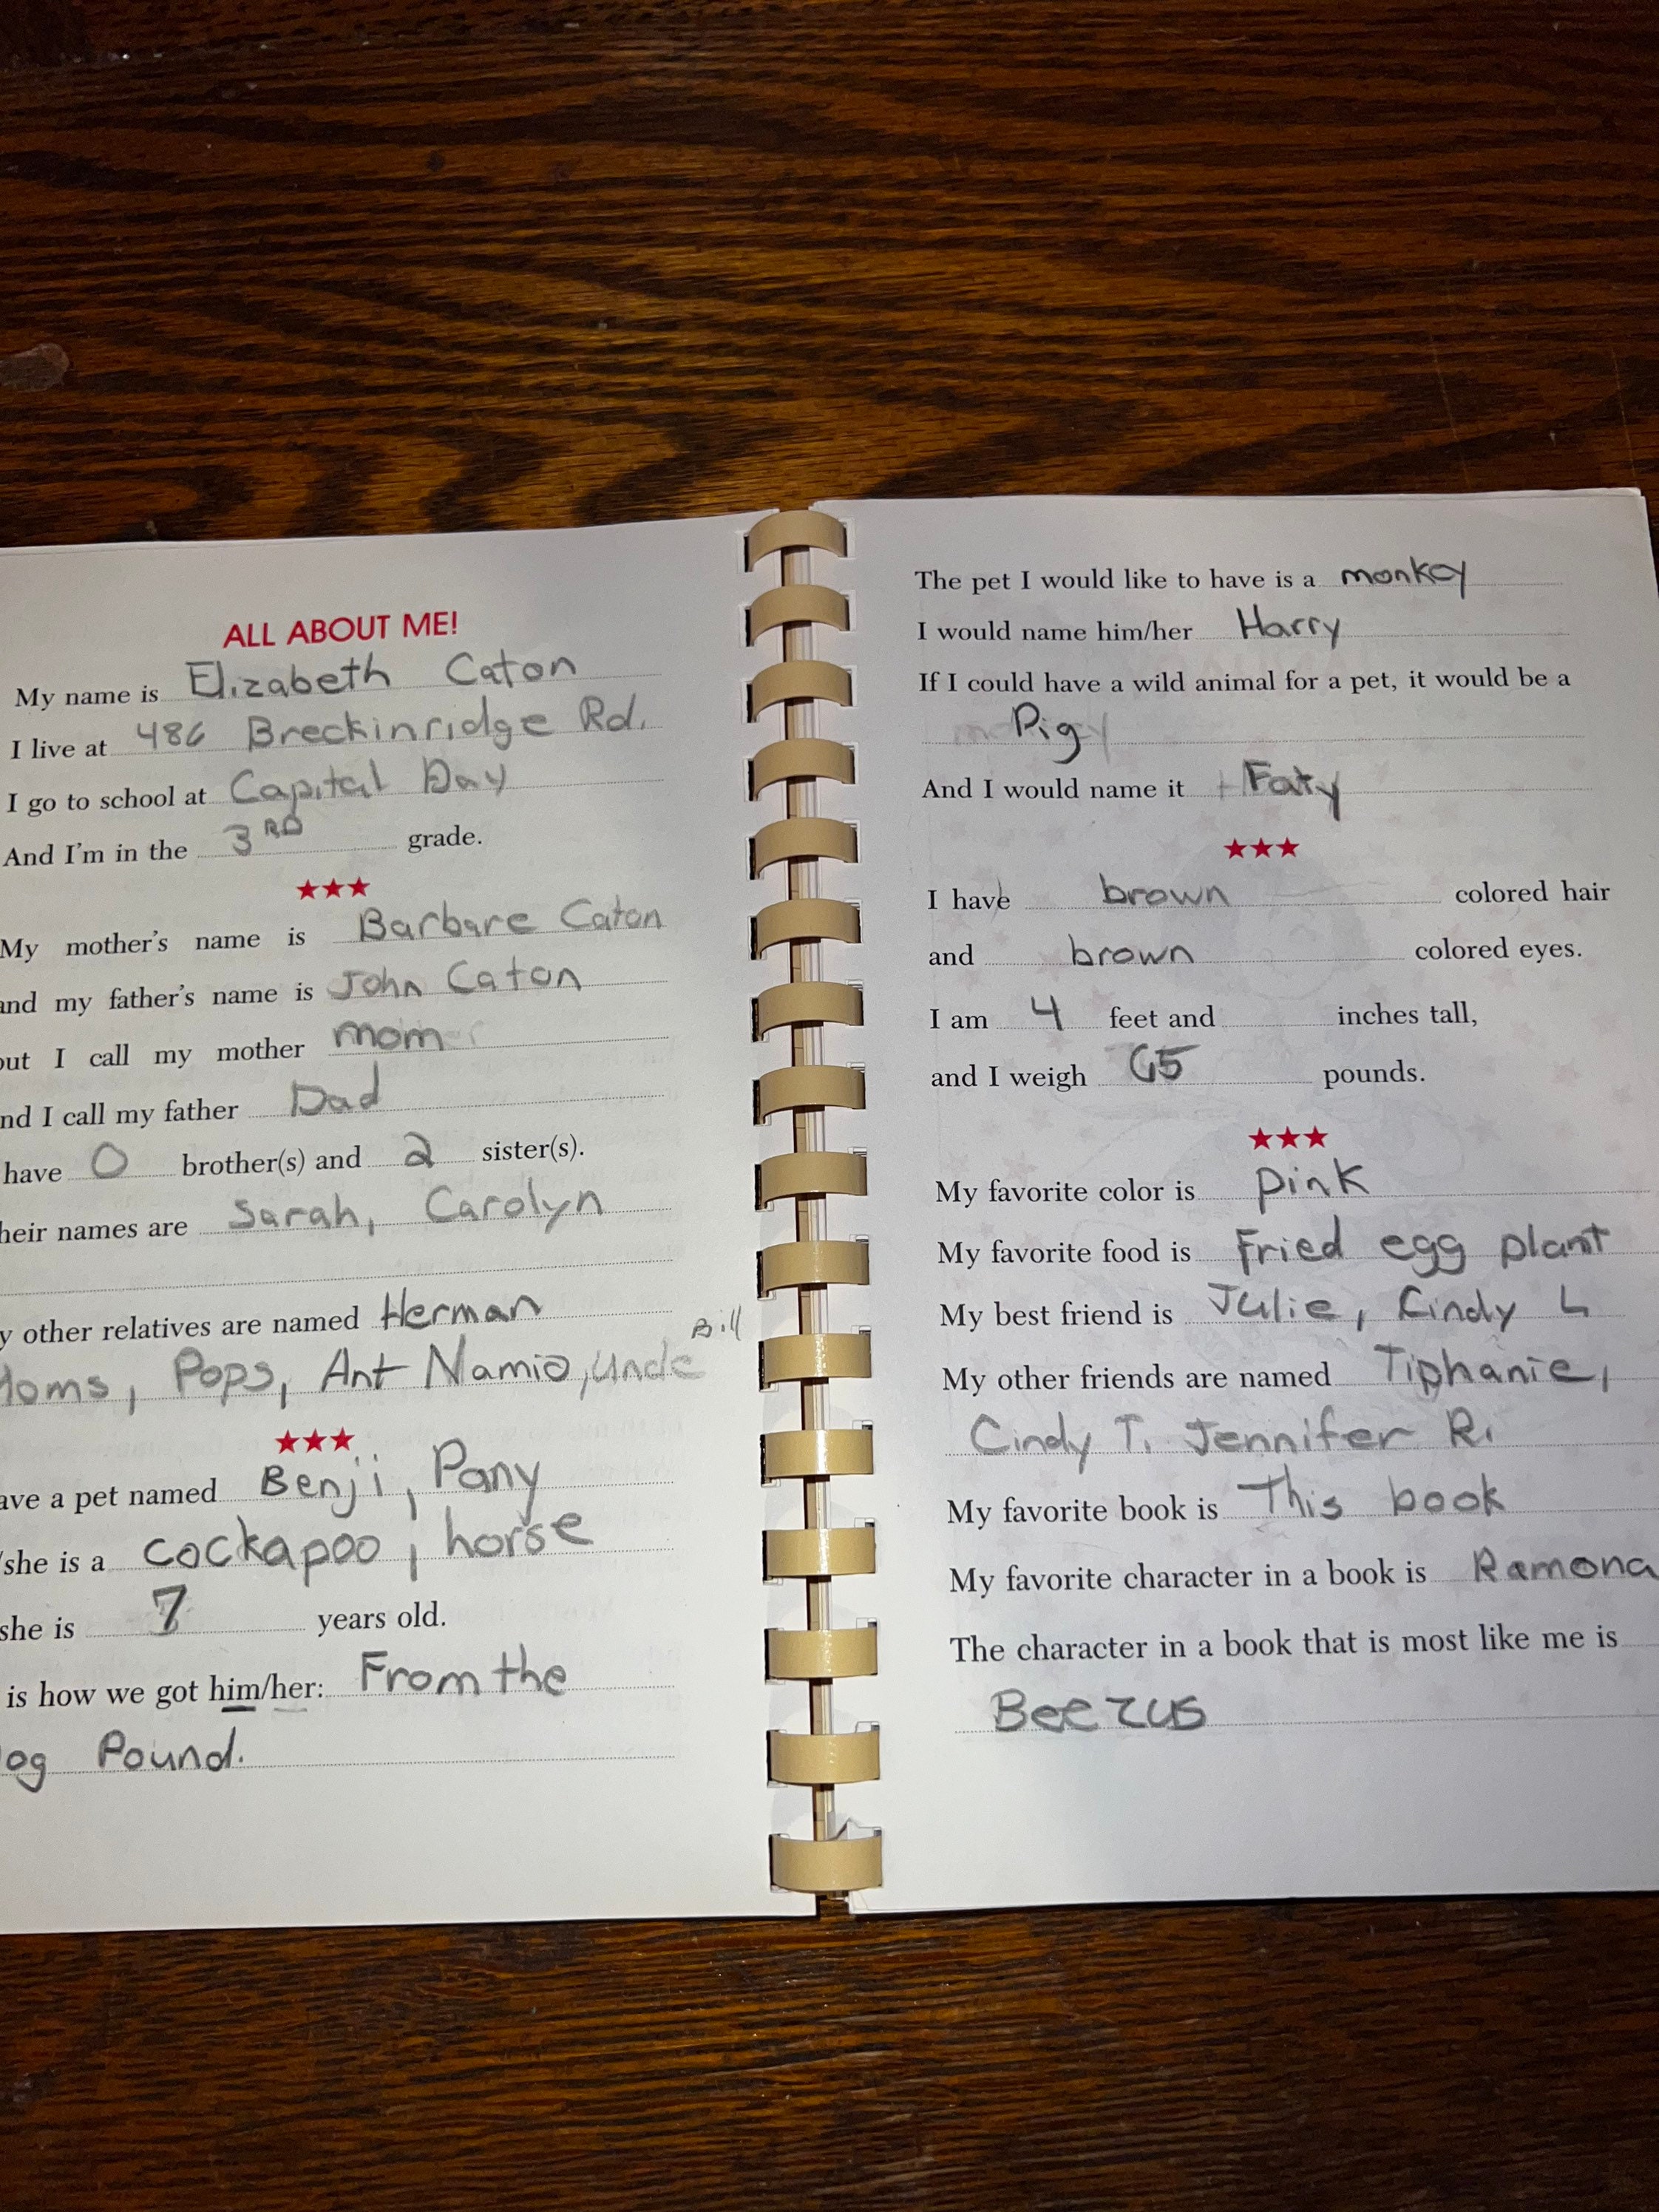 ALL ABOUT ME!
My name is Elizabeth Caton
I live at 486 Breckinridge Rd.
I go to school at Capital Day
And I'm in the 3RD grade.
★★★
My mother's name is Barbare Caton
and my father's name is John Caton
but I call my mother mom
nd I call my father Dad
have 0 brother(s) and 2 sister(s).
heir names are Sarah, Carolyn
y other relatives are named Herman
Moms, Pops, Ant Namio, Uncle Bill
★★★
ave a pet named Benji, Pany
/she is a cockapoo, horse
she is 7 years old.
is how we got him/her: From the
og Pound.
The pet I would like to have is a monkey
I would name him/her Harry
If I could have a wild animal for a pet, it would be a
Pig
And I would name it Faty
★★★
I have brown colored hair
and brown colored eyes.
I am 4 feet and inches tall,
and I weigh 65 pounds.
★★★
My favorite color is pink
My favorite food is Fried egg plant
My best friend is Julie, Cindy L
My other friends are named Tiphanie,
Cindy T. Jennifer R.
My favorite book is This book
My favorite character in a book is Ramona
The character in a book that is most like me is
Beezus